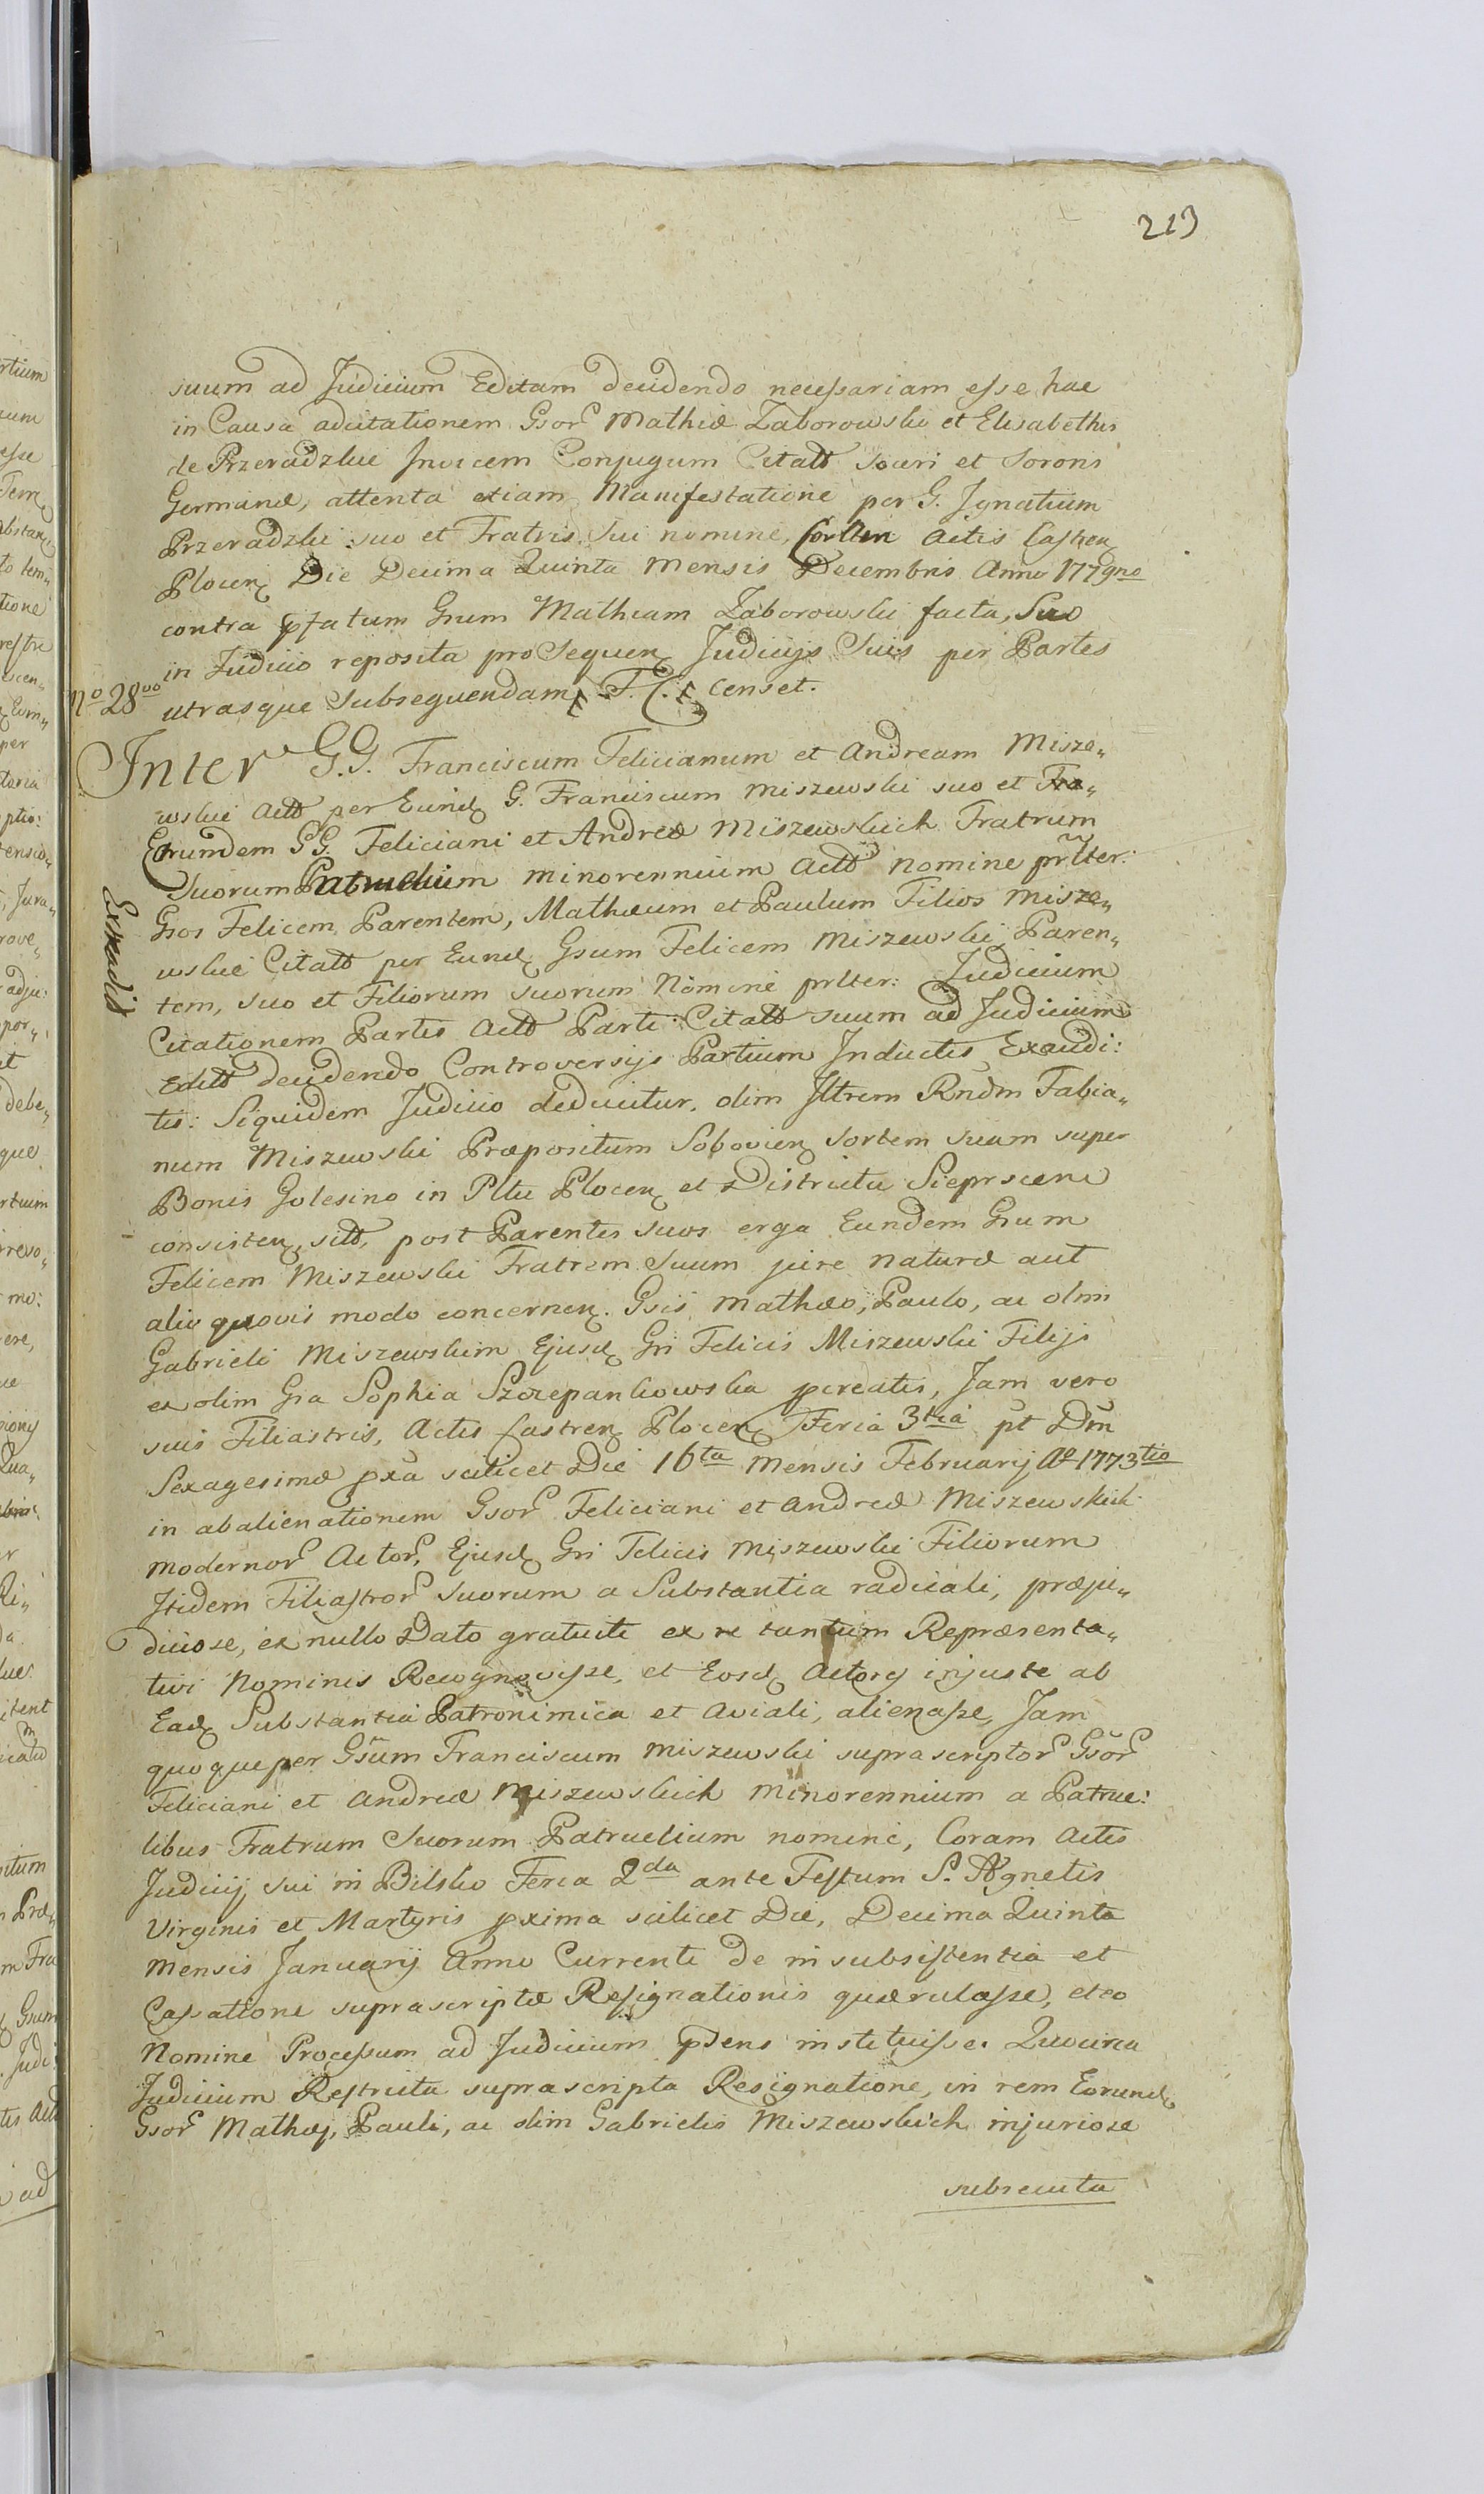 213
suum ad Judicium Editam decidendo necessariam esse hac
in Causa adcitationem Gsor Mathiæ Zaborowski et Elisabethis
de Przeradzkie Invicem Conjugum Citatt Soceri et Sororis
Germanæ, attenta etiam Manifestatione per G. Ignatium
Przeradzki suo et Fratris Sui nomine, Coram Actis Castren
Plocen Die Decima Quinta Mensis Decembris Anno 1779no
contra pfatum Gnum Mathiam Zaborowski facta, Suo
in Judicio reposita pro Sequen Judicijs Suis per Partes
utrasque Subsequendam censet.
No 28vo
Inter G.G. Franciscum Felicianum et Andream Misze„
wskie Actt per Eund G. Franciscum Miszewski suo et
Eorumdem GG. Feliciani et Andreæ Miszewskich Fratrum
Suorum Patruelium minorennium Actt nomine prlter:
Extradit
Gsos Felicem Parentem, Mathæum et Paulum Filios Misze„
wskie Citatt per Eund Gsum Felicem Miszewski Paren„
tem, suo et Filiorum suorum Nomine prlter: Judicium
Citationem Partis Actt Parti Citatt suum ad Judicium
Editt decidendo Controversijs Partium Inductis Exaudi:
tis: Siquidem Judicio deducitur, olim Iltrem Rndm Fabia„
num Miszewski Præpositum Sobovien Sortem suam super
Bonis Golesino in Pltu Plocen et Districtu Sieprscensi
consisten, sitt, post Parentes suos erga Eundem Gnum
Felicem Miszewski Fratrem Suum jure naturæ aut
alio quovis modo concernen. Gsis Mathæo, Paulo, ac olim
Gabrieli Miszewskim Ejusd Gni Felicis Miszewski Filijs
ex olim Gsa Sophia Szczepankowska pcreatis, Jam vero
suis Filiastris, Actis Castren Plocen Feria 3tia pt Dm
Sexagesimæ pxa scilicet Die 16ta Mensis Februarij Ao 1773tio
in abalienationem Gsor Feliciani et Andreæ Miszewskich
modernor Actor, Ejusd Gni Felicis Miszewski Filiorum
Itidem Filiastror suorum a Substantia radicali, præju„
diciose, ex nullo Dato gratuite ex re tantum Repræsenta„
tivi Nominis Recognovisse, et Eosd Actores injuste ab
Ead Substantia Patronimica et Aviali, alienasse, Jam
quoque per Gsum Franciscum Miszewski suprascriptor Gsor
Feliciani et Andreæ Miszewskich Minorennium a Patrue:
libus Fratrum Suorum Patruelium nomine, Coram Actis
Judicij sui in Bilsko Feria 2da ante Festum S. Agnetis
Virginis et Martyris pxima scilicet Die, Decima Quinta
Mensis Januarij Anno Currenti de insubsistentia et
Cassatione suprascriptæ Resignationis quærulasse, et eo
Nomine Processum ad Judicium psens instituisse. Quocirca
Judicium Restricta suprascripta Resignatione, in rem Eorund
Gsor Mathæj, Pauli, ac olim Gabrielis Miszewskich injuriose
subsecuta